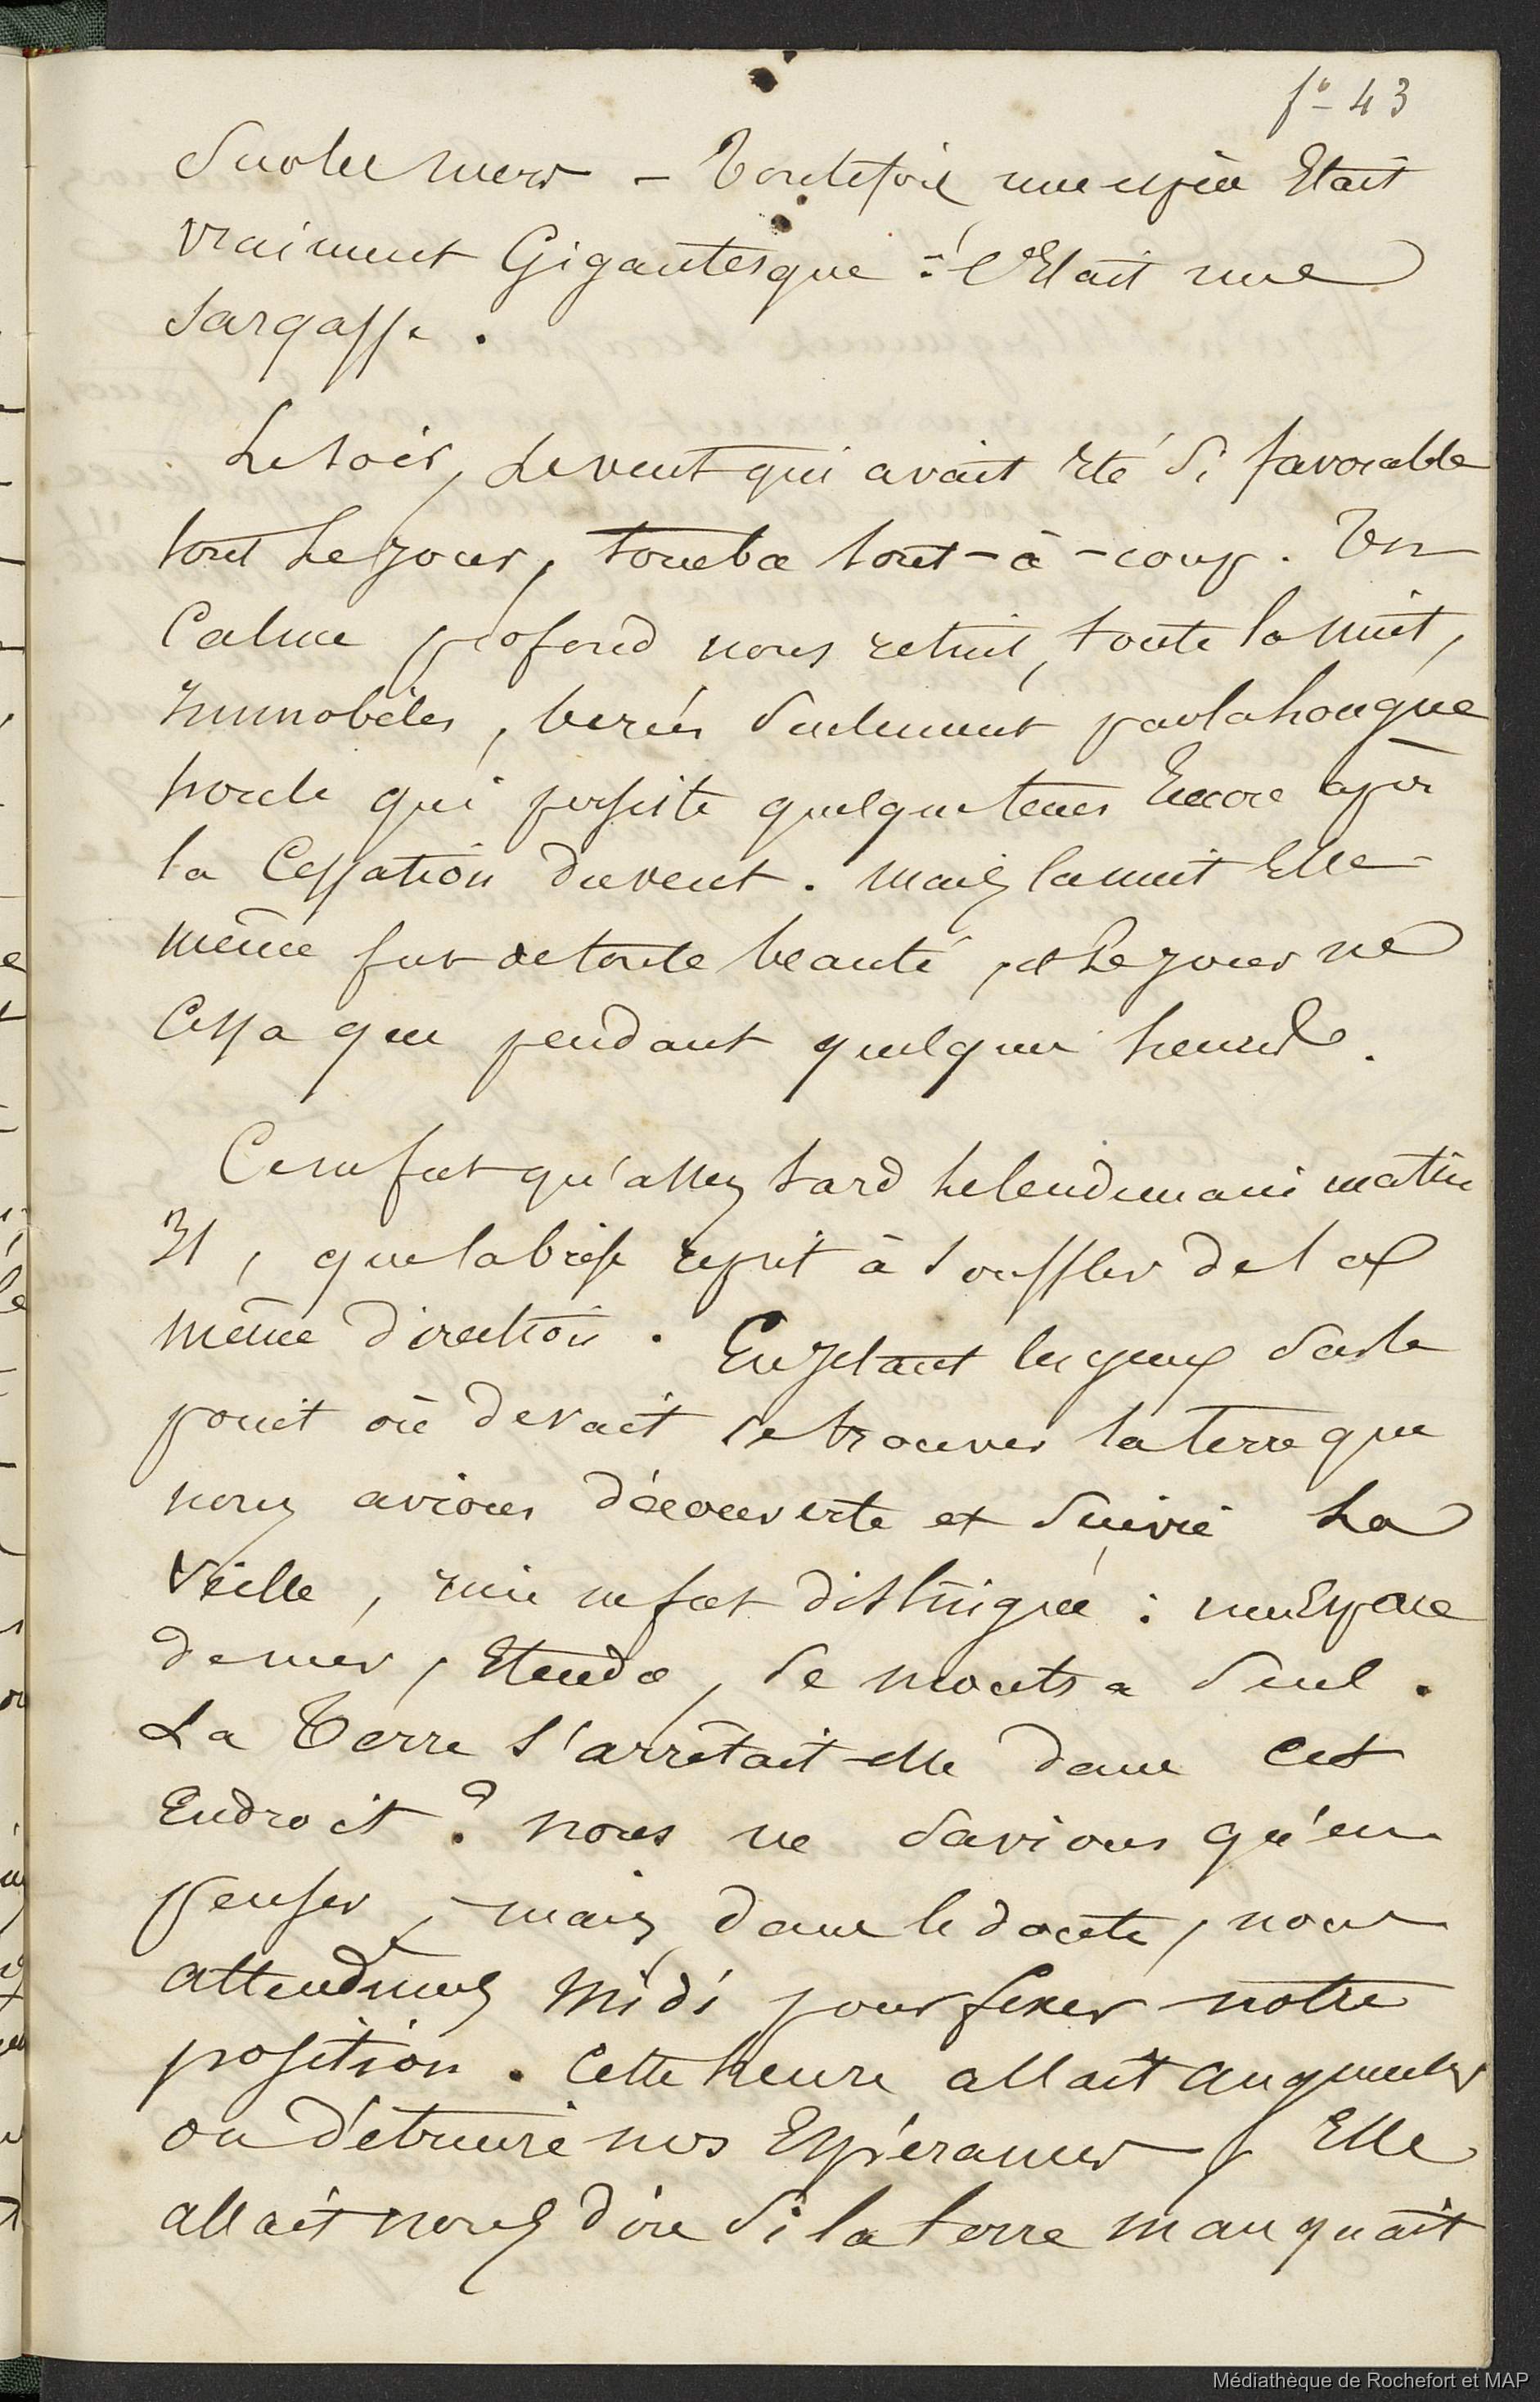 fo- 43
Sur les mers – Toutefois une espèce Etait
vraiment Gigantesque : C'Etait une
Sargasse.
Le soir, le vent qui avait été si favorable
tout le jour, tomba tout-à-coup. Un
Calme profond nous retint, toute la nuit,
Immobiles, bercés Seulement par la longue
houle qui persiste quelque tems Encore après
la Cessation du vent. mais la nuit Elle
même fut de toute beauté, et le jour ne
Cessa que pendant quelques heures.
Ce ne fut qu'assez tard le lendemain matin
31, que la brise reprit à souffler de la
même direction. En jetant les yeux sur le
point où devait se trouver la terre que
nous avions découverte et Suivie La
Veille, rien ne fut distingué : un Espace
de mer, Etendu, se montra Seul.
La Terre s'arrêtait-elle dans cet
Endroit ? nous ne Savions qu'en
penser, mais, dans le doute, nous
attendîmes Midi pour fixer notre
position. Cette heure allait augmenter
ou détruire nos Espérances, Elle
allait nous dire Si la terre manquait
Médiathèque de Rochefort et MAP